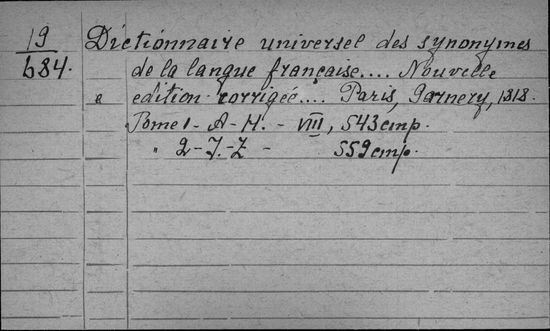 19 Dictionnaire universel des synonymes
684. de la langue française.... Nouvelle
e edition corrigée.... Paris, Garnery, 1818.
Tome 1 - A - H. - VIII, 543 стр.
" 2 - J. - Z - 559 стр.